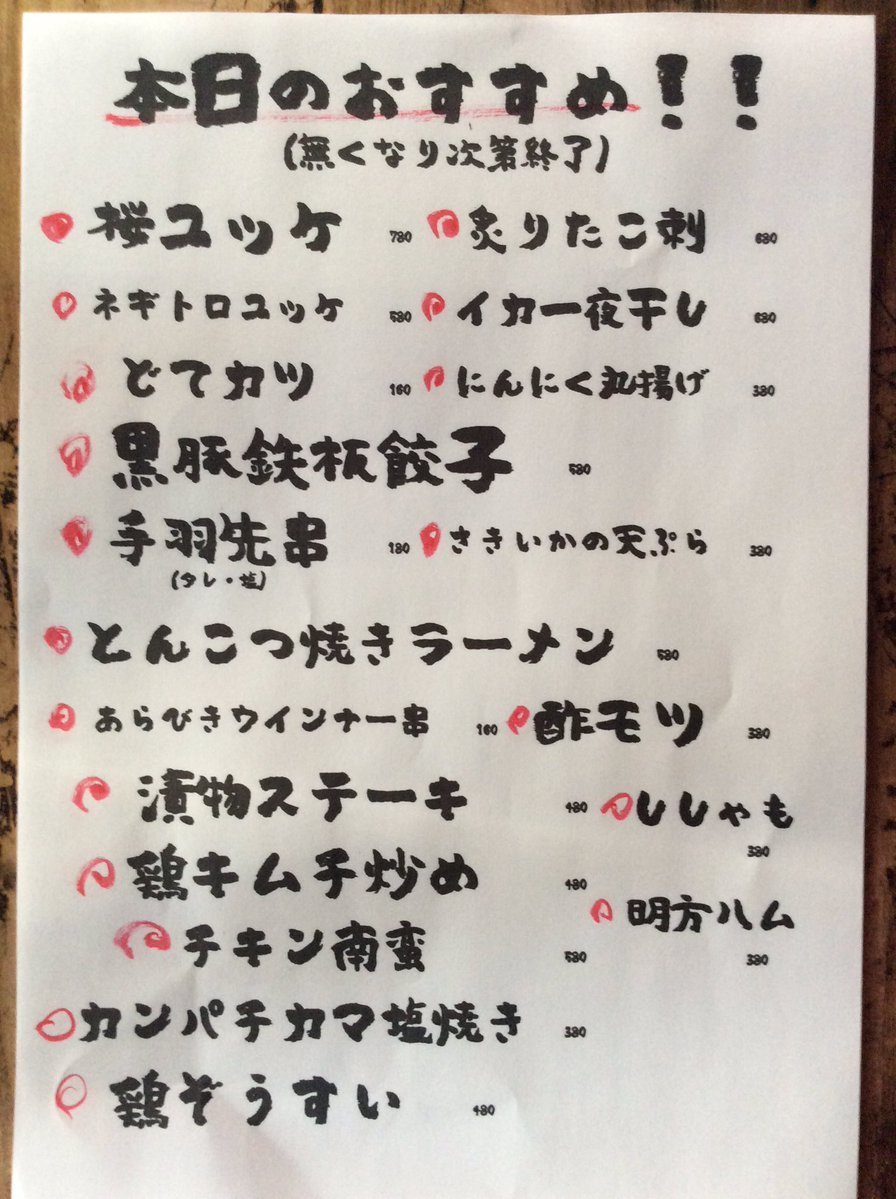 本日のおすすめ!!
(無くなり次第終了)
桜ユッケ 780 炙りたこ刺 680
ネギトロユッケ 580 イカ一夜干し 680
どてカツ 160 にんにく丸揚げ 380
黒豚鉄板餃子 580
手羽先串 180 さきいかの天ぷら 380
(タレ・塩)
とんこつ焼きラーメン 580
あらびきウインナー串 160 酢モツ 380
漬物ステーキ 480 ししゃも
380
鶏キムチ炒め 480
明方ハム
チキン南蛮 580 380
カンパチカマ塩焼き 380
鶏ぞうすい 480